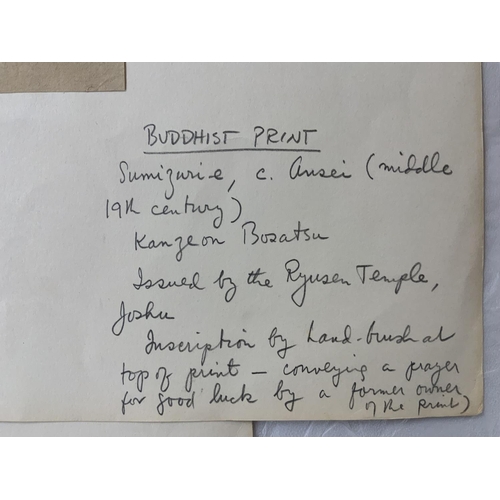 BUDDHIST PRINT
Sumizuri-e, c. Ansei (middle
19th century)
Kanzeon Bosatsu
Issued by the Ryusen Temple,
Joshu
Inscription by hand-brush at
top of print — conveying a prayer
for good luck by a former owner
of the print)